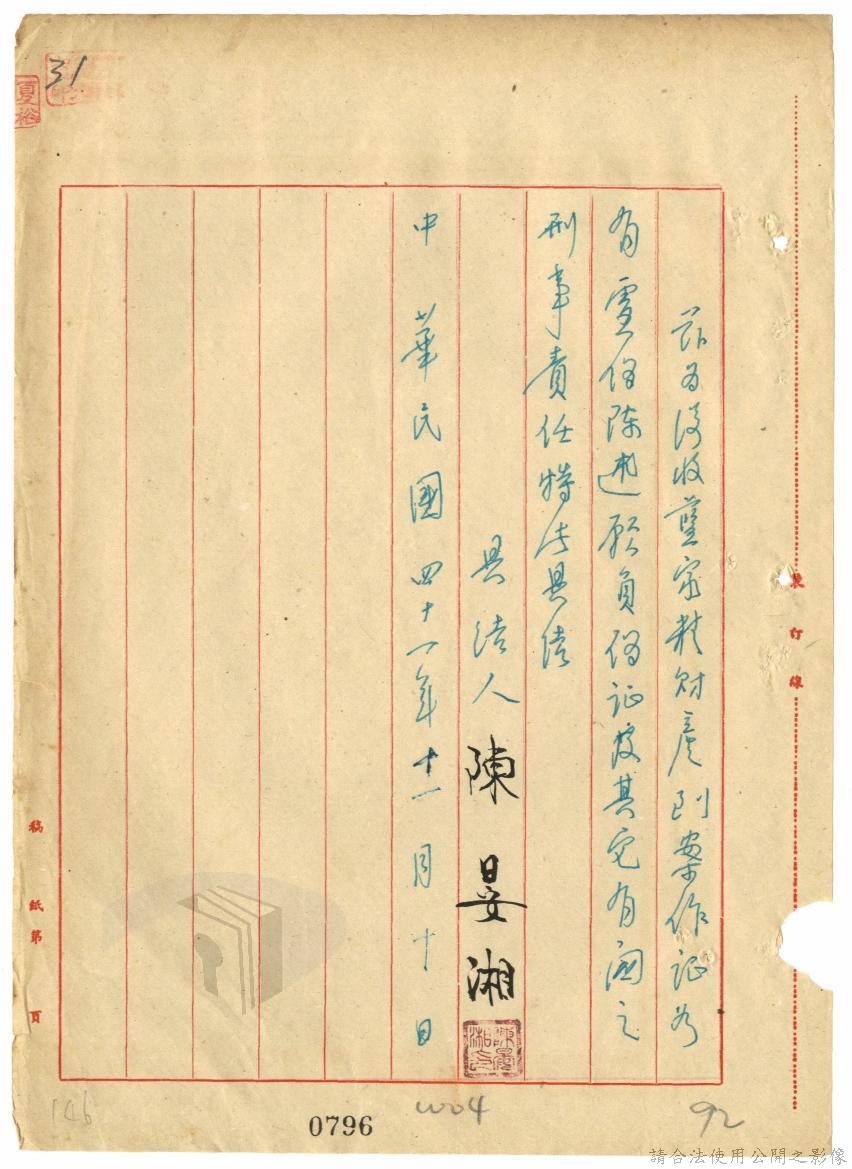 茲為沒收藍家精財產到案作证如
有虛偽陳述願負偽证及其它有関之
刑事責任特此具结
具结人 陳晏湘
中華民國四十一年十一月十日
31
夏裕
裝訂線
稿紙第 頁
146
0796
W04
92
請合法使用公開之影像